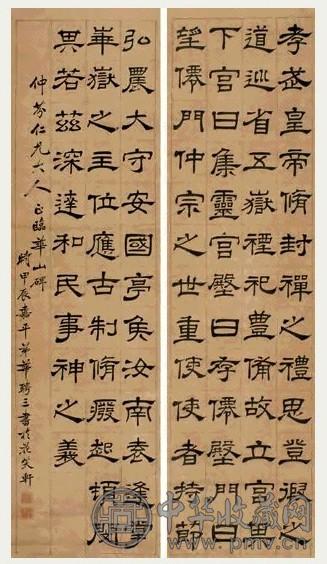 孝武皇帝脩封禪之禮思登徦之
道巡省五嶽禋祀豐備故立宮其
下宮曰集靈宮壂曰存僊壂門曰
望僊門仲宗之世重使使者持節
弘農大守安國亭矦汝南袁逢掌
華嶽之主位應古制脩癈起頓閔
其若茲深達和民事神之義
仲芬仁兄大人正臨華山碑
時甲辰嘉平弟華三書於花笑軒
中华收藏网
www.pmv.cn